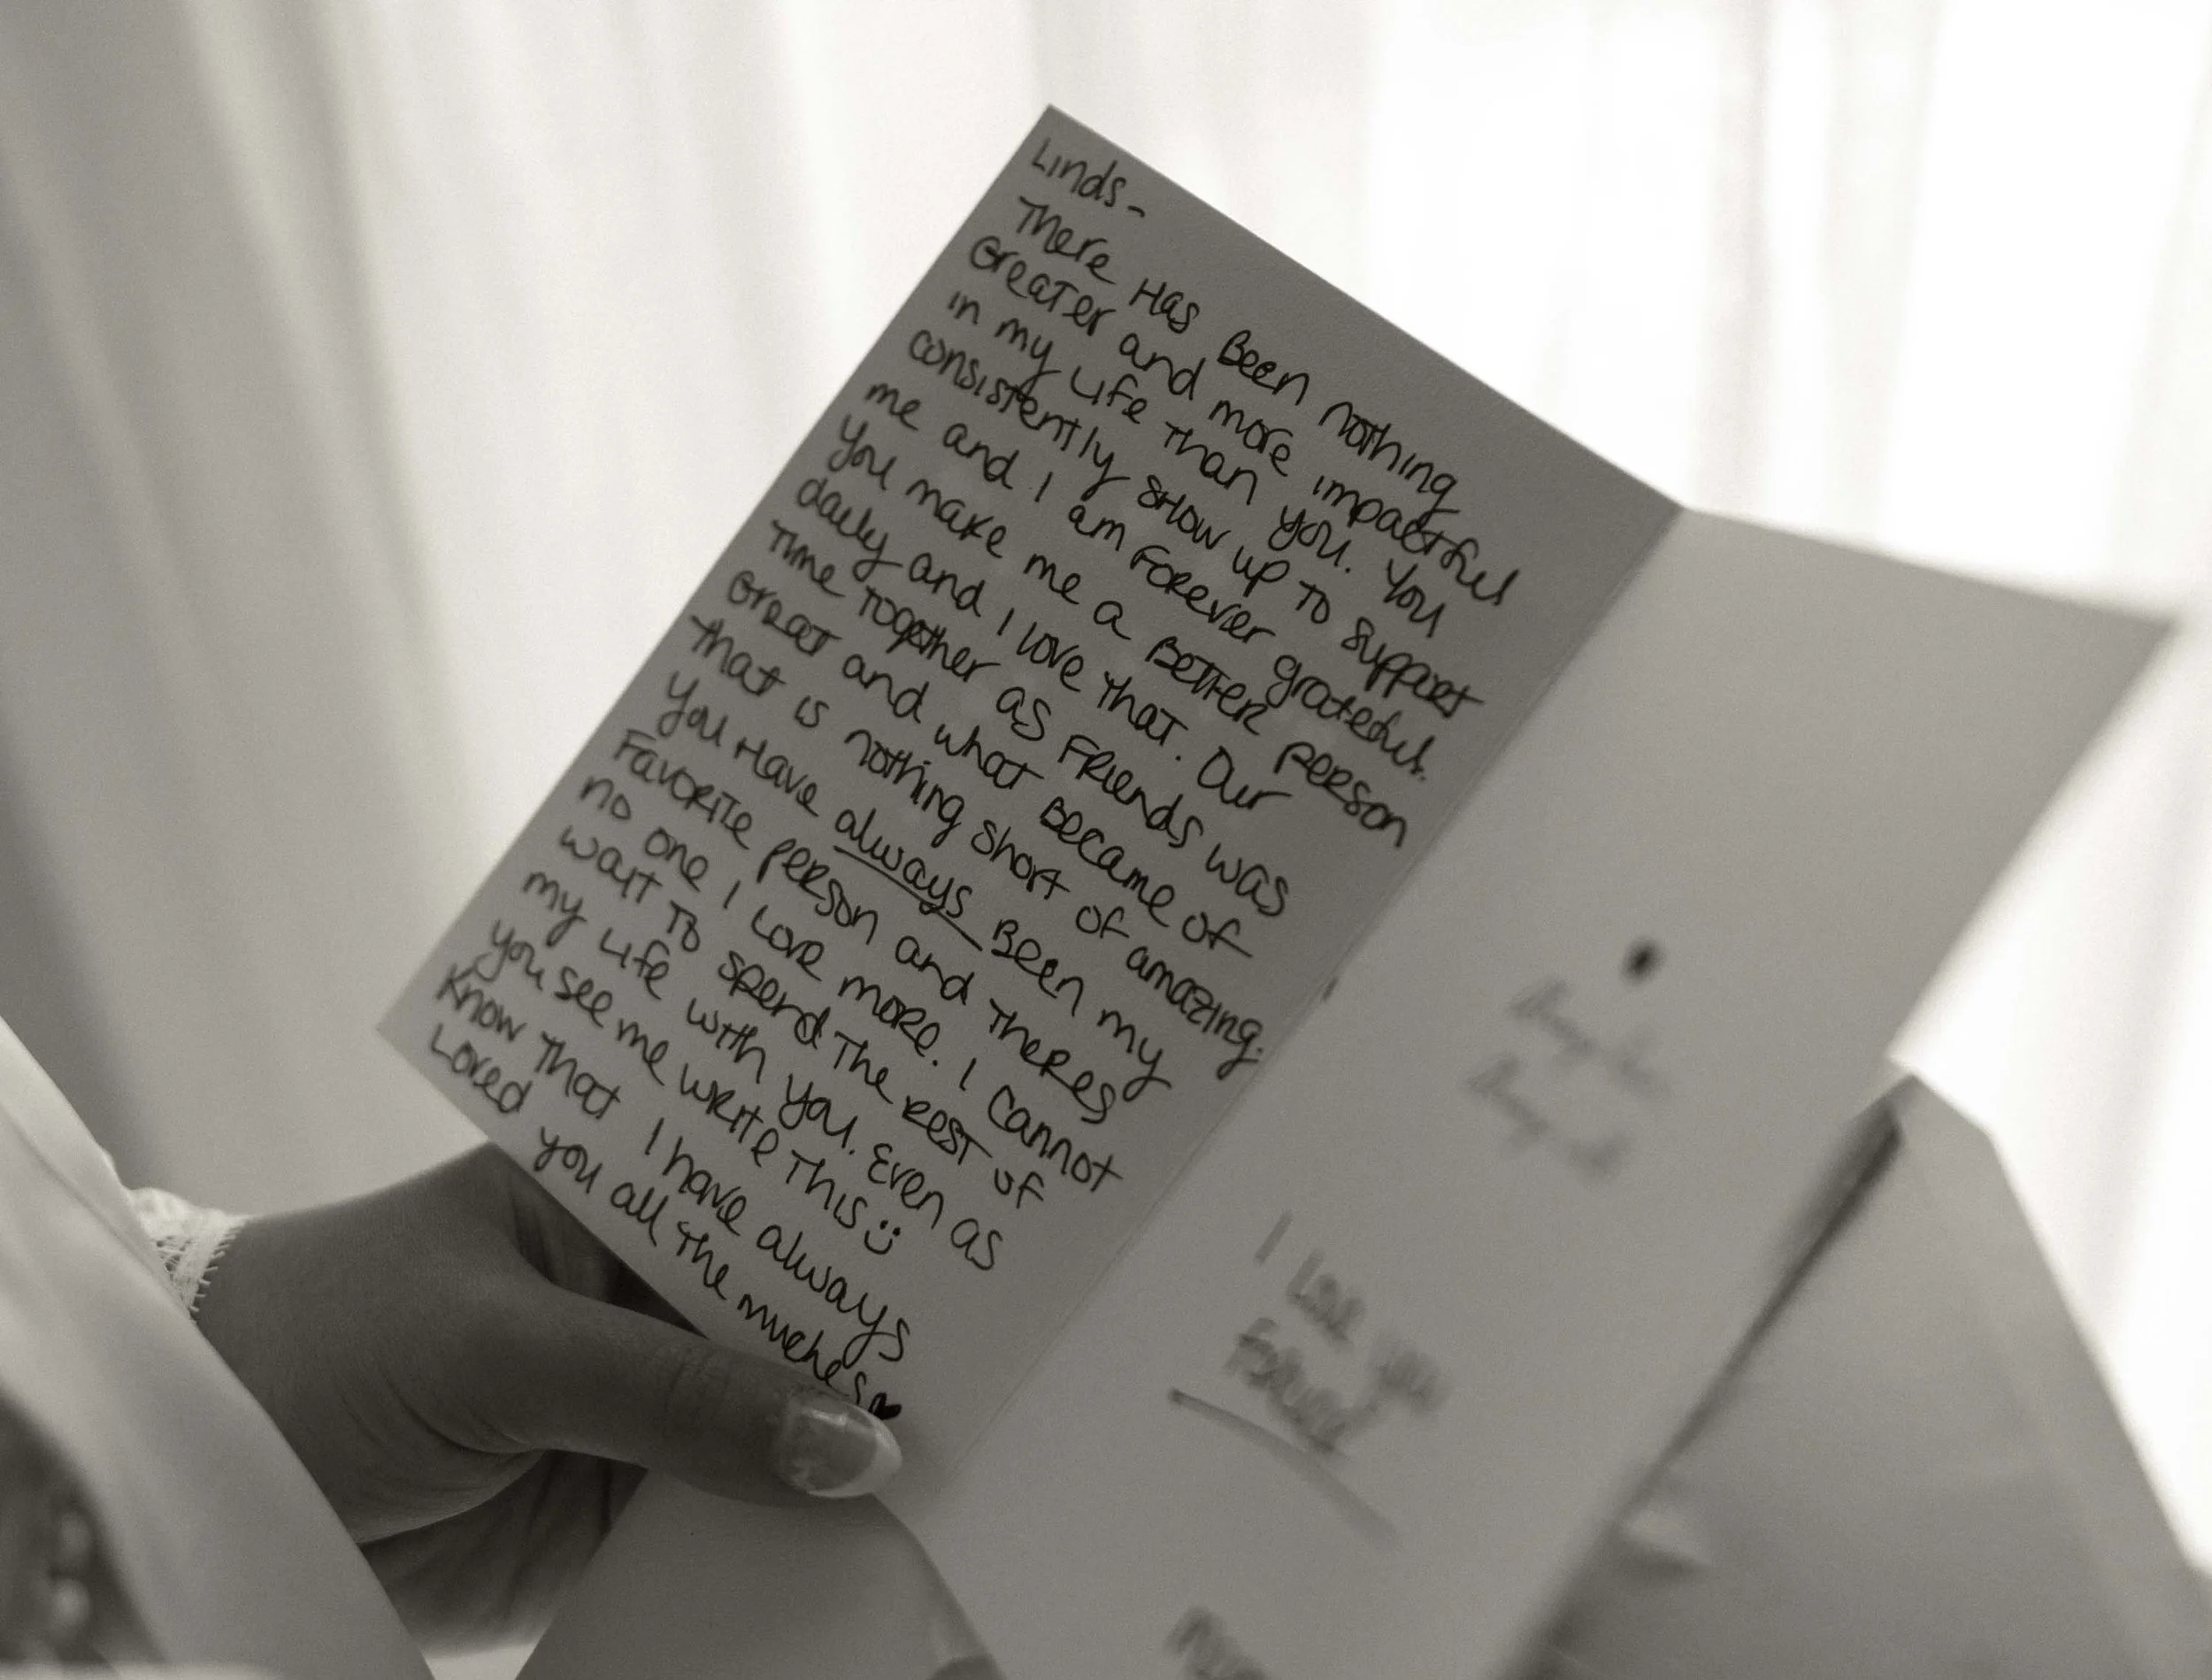 Linds-
There Has Been nothing
Greater and more impactful
in my Life Than you. You
consistently show up to support
me and I am Forever grateful.
You make me a Better person
daily and I love that. Our
Time Together as Friends was
Great and what Became of
that is nothing short of amazing.
You Have always Been my
Favorite person and theres
no one I love more. I cannot
wait To spend The rest of
my Life with you. Even as
you see me write This :)
Know That I have always
Loved you all The muches ♥
I Love you